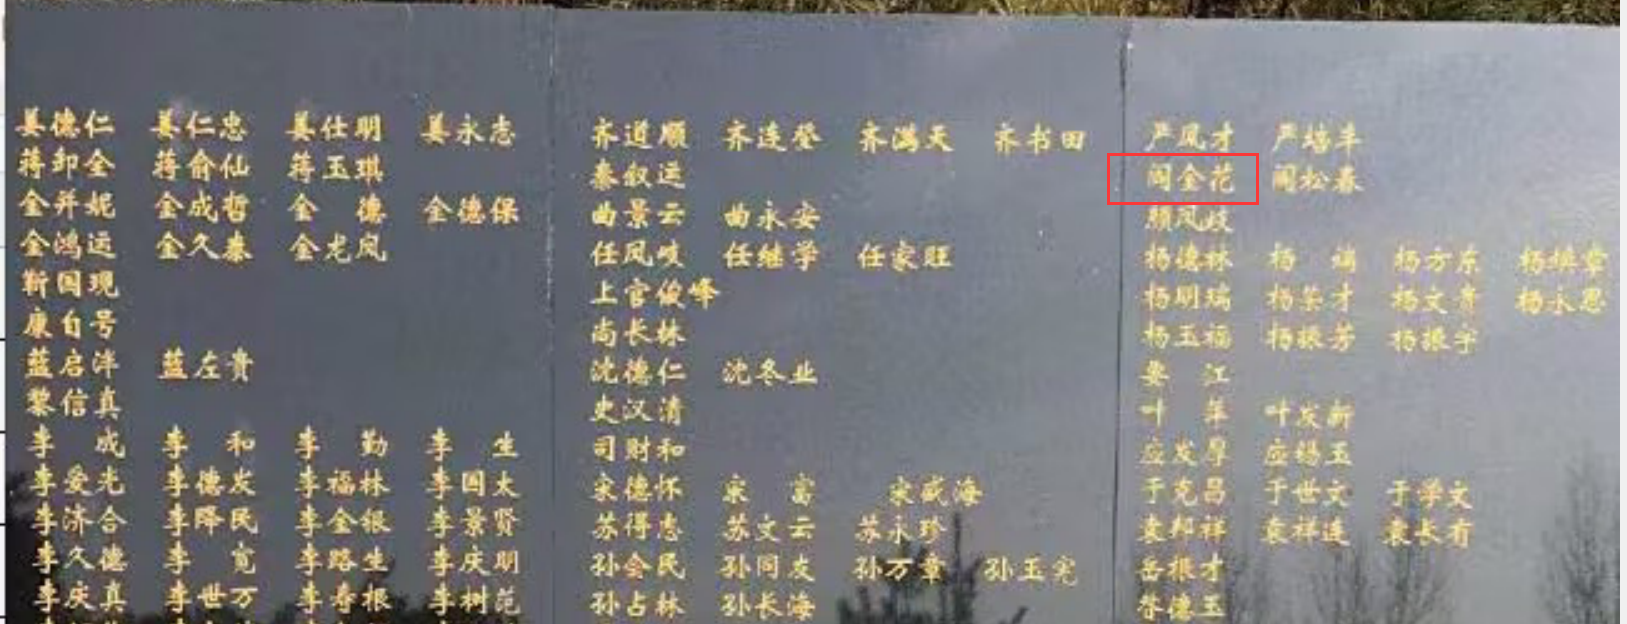 姜德仁 姜仁忠 姜仕明 姜永志
蒋卸全 蒋俞仙 蒋玉琪
金并妮 金成哲 金 德 金德保
金鸿运 金久泰 金龙凤
靳国现
康自号
蓝启洋 蓝左贵
黎信真
李 成 李 和 李 勤 李 生
李爱光 李德发 李福林 李国太
李济合 李降民 李金银 李景贤
李久德 李 宽 李路生 李庆明
李庆真 李世万 李寿根 李树范
齐道顺 齐连登 齐满天 齐书田
秦叙运
曲景云 曲永安
任凤岐 任继学 任家旺
上官俊峰
尚长林
沈德仁 沈冬业
史汉清
司财和
宋德怀 宋 富 宋威海
苏得志 苏文云 苏永珍
孙会民 孙同友 孙万章 孙玉宪
孙占林 孙长海
严凤才 严培丰
阎金花 阎松春
颜凤岐
杨德林 杨 福 杨方东
杨明瑞 杨荣才 杨文贵 杨永恩
杨玉福 杨振芳 杨振宇
要 江
叶 萍 叶发新
应发厚 应锡玉
于克昌 于世文 于学文
袁邦祥 袁祥连 袁长有
岳根才
昝德玉